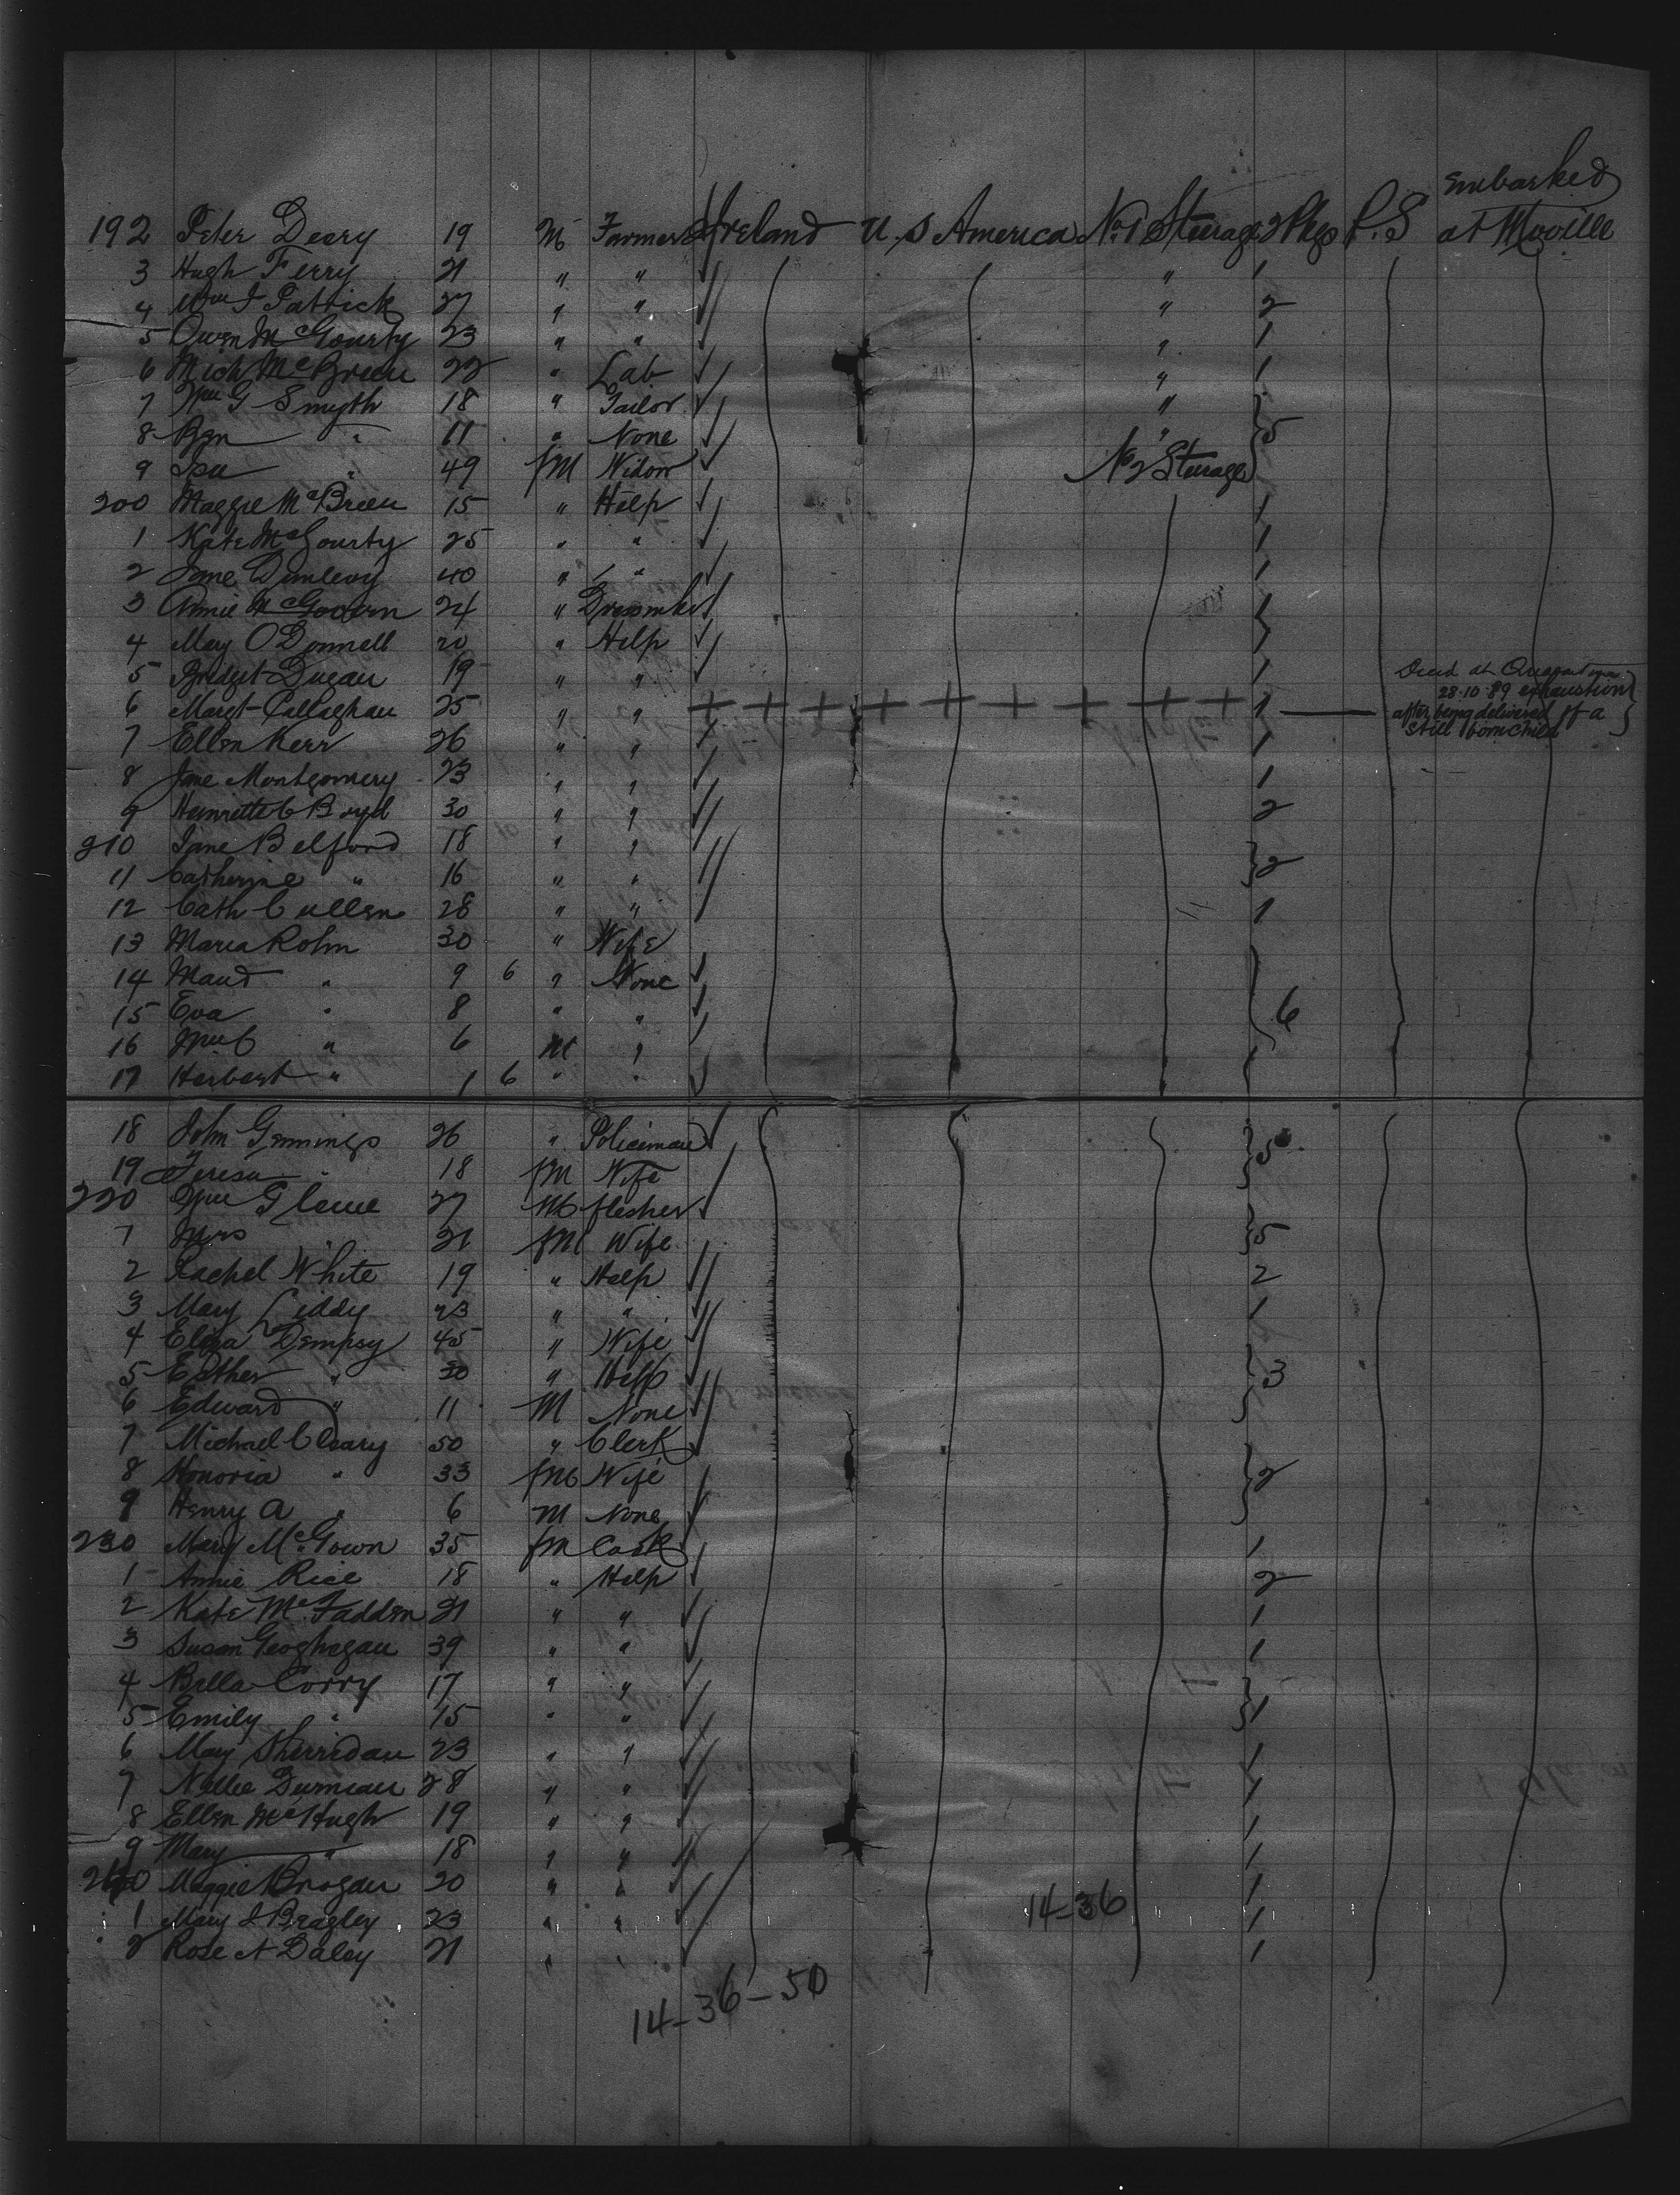 Embarked
192 Peter Deery 19 M Farmer Ireland U.S America No 1 Steerage 2 Pkgs P.S at Moville
3 Hugh Ferry 21 " " " 1
4 Wm J Patrick 27 " " " 2
5 Owen McGourty 23 " " " 1
6 Mich McBreen 22 " Lab " 1
7 Wm G Smyth 18 " Tailor "
8 Ben " 11 " None " 5
9 " 49 fM Widow No 2 Steerage
200 Maggie McBreen 15 " Help 1
1 Kate McGourty 25 " " 1
2 Jane Dunlevy 40 " " 1
3 Annie McGovern 24 " Dressmkr 1
4 Mary O'Donnell 20 " Help 1
5 Bridget Dugan 19 " " 1
6 Margt Callaghan 25 " " + + + + + + + + + + 1 Died at Quarantine
28.10.89 exhaustion
after being delivered of a
Still born child
7 Ellen Kerr 26 " " 1
8 Jane Montgomery 23 " " 1
9 Henrietta C Boyd 30 " " 2
210 Jane Belford 18 " " 2
11 Catherine " 16 " "
12 Cath Cullen 28 " " 1
13 Maria Rohn 30 " Wife
14 Maud " 9 6 " None
15 Eva " 8 " " 6
16 Wm C " 6 M "
17 Herbert " 1 6 " "
18 John Gennings 26 " Policeman 5
19 Teresa " 18 fM Wife
220 Wm 27 M flesher
1 Mrs 21 fM Wife 5
2 Rachel White 19 " Help 2
3 Mary Liddy 23 " " 1
4 Eliza Dempsy 45 " Wife
5 Esther " 20 " Help 3
6 Edward " 11 M None
7 Michael Cleary 50 " Clerk
8 Honoria " 33 fM Wife 2
9 Henry A " 6 M None
230 Mary McGown 35 fM Cook 1
1 Annie Rice 18 " Help 2
2 Kate McFadden 21 " " 1
3 Susan Geoghegan 39 " " 1
4 Bella Corry 17 " "
5 Emily " 15 " " 1
6 Mary Sherridan 23 " " 1
7 Nellie Durnian 28 " " 1
8 Ellen McHugh 19 " " 1
9 Mary " 18 " " 1
240 Maggie Brogan 20 " " 1
1 Mary J Bragley 23 " " 14-36 1
2 Rose A Daley 21 " " 1
14-36-50